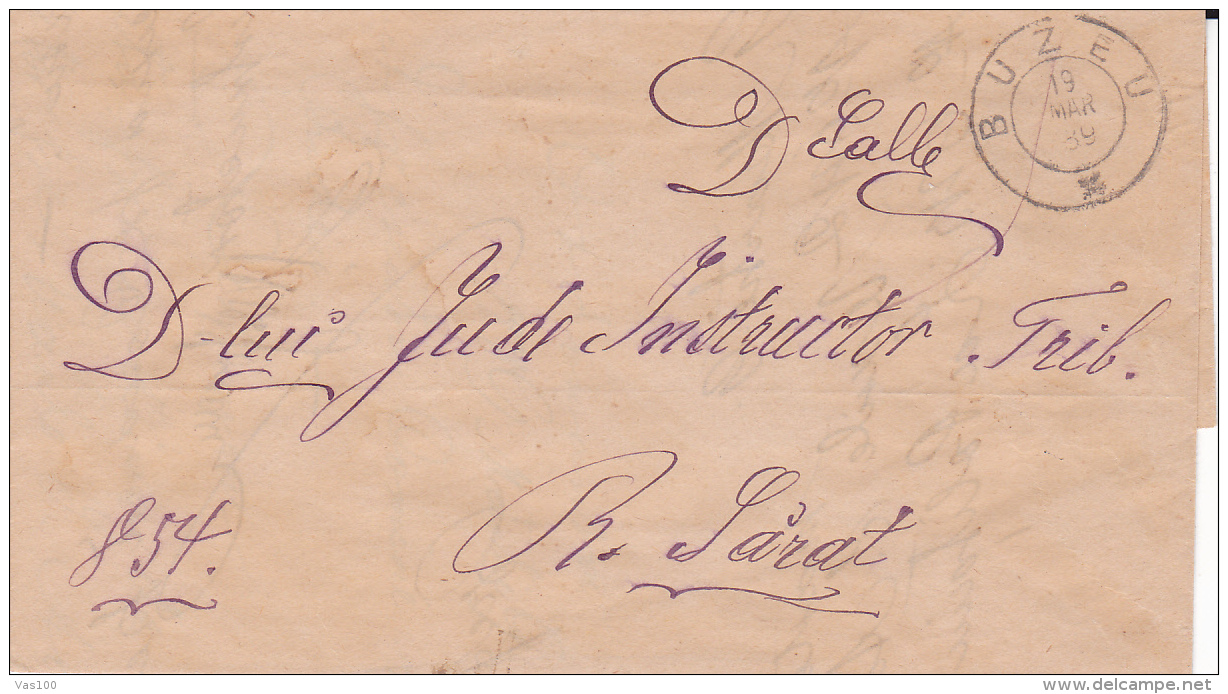 BUZEU
19
MAR
89
D Salle
D-lui Jude Instructor. Trib.
R. Sărat
854.
Vas100
delcampe.net